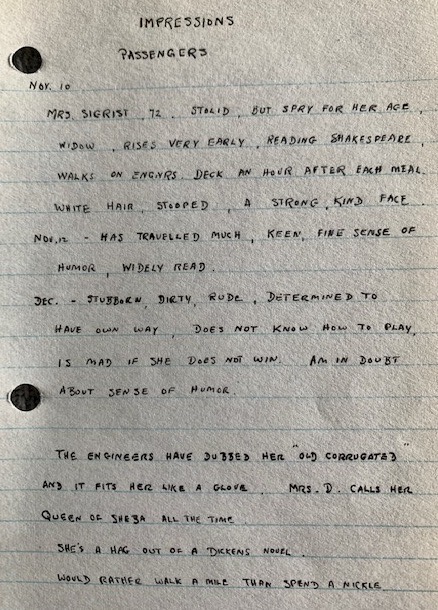 IMPRESSIONS
PASSENGERS
NOV. 10
MRS. SIGRIST, 72. STOLID, BUT SPRY FOR HER AGE,
WIDOW, RISES VERY EARLY, READING SHAKESPEARE,
WALKS ON ENGNRS. DECK AN HOUR AFTER EACH MEAL.
WHITE HAIR, STOOPED, A STRONG, KIND FACE.
NOV. 12 - HAS TRAVELLED MUCH, KEEN, FINE SENSE OF
HUMOR, WIDELY READ.
DEC. - STUBBORN, DIRTY, RUDE, DETERMINED TO
HAVE OWN WAY, DOES NOT KNOW HOW TO PLAY,
IS MAD IF SHE DOES NOT WIN. AM IN DOUBT
ABOUT SENSE OF HUMOR.
THE ENGINEERS HAVE DUBBED HER "OLD CORRUGATED"
AND IT FITS HER LIKE A GLOVE. MRS. D. CALLS HER
QUEEN OF SHEBA ALL THE TIME.
SHE'S A HAG OUT OF A DICKENS NOVEL.
WOULD RATHER WALK A MILE THAN SPEND A NICKLE.